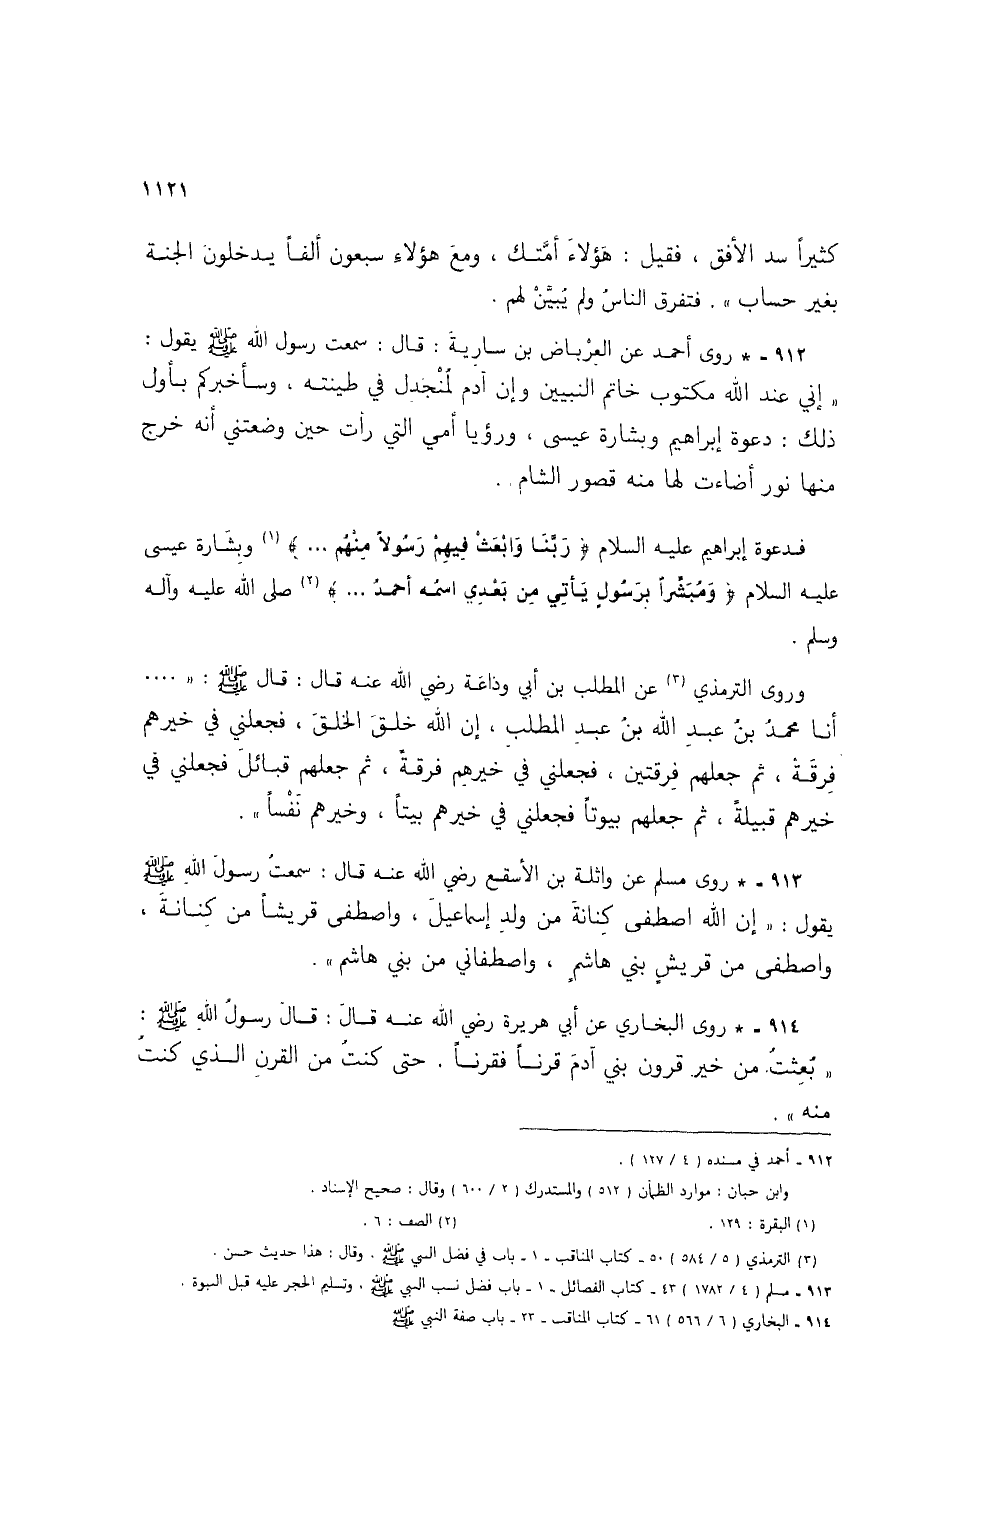 ١١٢١
كثيراً سد الأفق ، فقيل : هَؤلاءَ أمَّتـك ، ومعَ هؤلاءِ سبعون ألفـاً يـدخلونَ الجنـة
بغير حساب » . فتفرق الناسُ ولم يُبيَّنْ لهم .
٩١٢ - * روى أحمد عن العِرْباض بن ساريةَ : قال : سمعت رسول الله ﷺ يقول :
« إني عند الله مكتوب خاتم النبيين وإن آدم لَمُنْجَدل في طينتـه ، وسـأخبركم بـأول
ذلك : دعوة إبراهيم وبشارة عيسى ، ورؤيا أمي التي رأت حين وضعتني أنه خرج
منها نور أضاءت لها منه قصور الشام .
فـدعوة إبراهيم عليـه السلام ﴿ رَبَّنَـا وَابْعَثْ فِيهِمْ رَسُولاً مِنْهُم ... ﴾ (١) وبِشَارة عيسى
عليـه السلام ﴿ وَمُبَشِّراً بِرَسُولٍ يَـأتِي مِن بَعْدِي اسمُـه أحمـدُ ... ﴾ (٢) صلى الله عليـه وآلـه
وسلم .
وروى الترمذي (٣) عن المطلب بن أبي وداعَـة رضي الله عنـه قال : قال ﷺ : « ....
أنـا محمدُ بنُ عبـدِ الله بنُ عبـدِ المطلبِ ، إن الله خلـقَ الخلقَ ، فجعلني في خيرهم
فِرقَةْ ، ثم جعلهم فِرقتين ، فجعلني في خيرهِم فرقـةً ، ثم جعلهم قبـائلَ فجعلني في
خيرهم قبيلةً ، ثم جعلهم بيوتاً فجعلني في خيرهم بيتاً ، وخيرهم نَفْساً » .
٩١٣ - * روى مسلم عن واثلة بن الأسقـع رضي الله عنـه قـال : سمعتُ رسولَ اللهِ ﷺ
يقول : « إن الله اصطفى كِنانةَ من ولدِ إسماعيلَ ، واصطفى قريشـاً من كِنـانـةَ ،
واصطفى من قريشٍ بني هاشمٍ ، واصطفاني من بني هاشم » .
٩١٤ - * روى البخاري عن أبي هريرة رضي الله عنـه قـالَ : قـالَ رسولُ اللهِ ﷺ :
« بُعثتُ من خير قرون بني آدمَ قرنـاً فقرنـاً . حتى كنتُ من القرنِ الـذي كنتُ
منه » .
٩١٢ - أحمد في مسنده ( ٤ / ١٢٧ ) .
وابن حبان : موارد الظمآن ( ٥١٢ ) والمستدرك ( ٢ / ٦٠٠ ) وقال : صحيح الإسناد .
(١) البقرة : ١٢٩ . (٢) الصف : ٦ .
(٣) الترمذي ( ٥ / ٥٨٤ ) ٥٠ - كتاب المناقب - ١ - باب في فضل النبي ﷺ . وقال : هذا حديث حسن .
٩١٣ - مسلم ( ٤ / ١٧٨٢ ) ٤٣ - كتاب الفضائل - ١ - باب فضل نسب النبي ﷺ ، وتسليم الحجر عليه قبل النبوة .
٩١٤ - البخاري ( ٦ / ٥٦٦ ) ٦١ - كتاب المناقب - ٢٣ - باب صفة النبي ﷺ